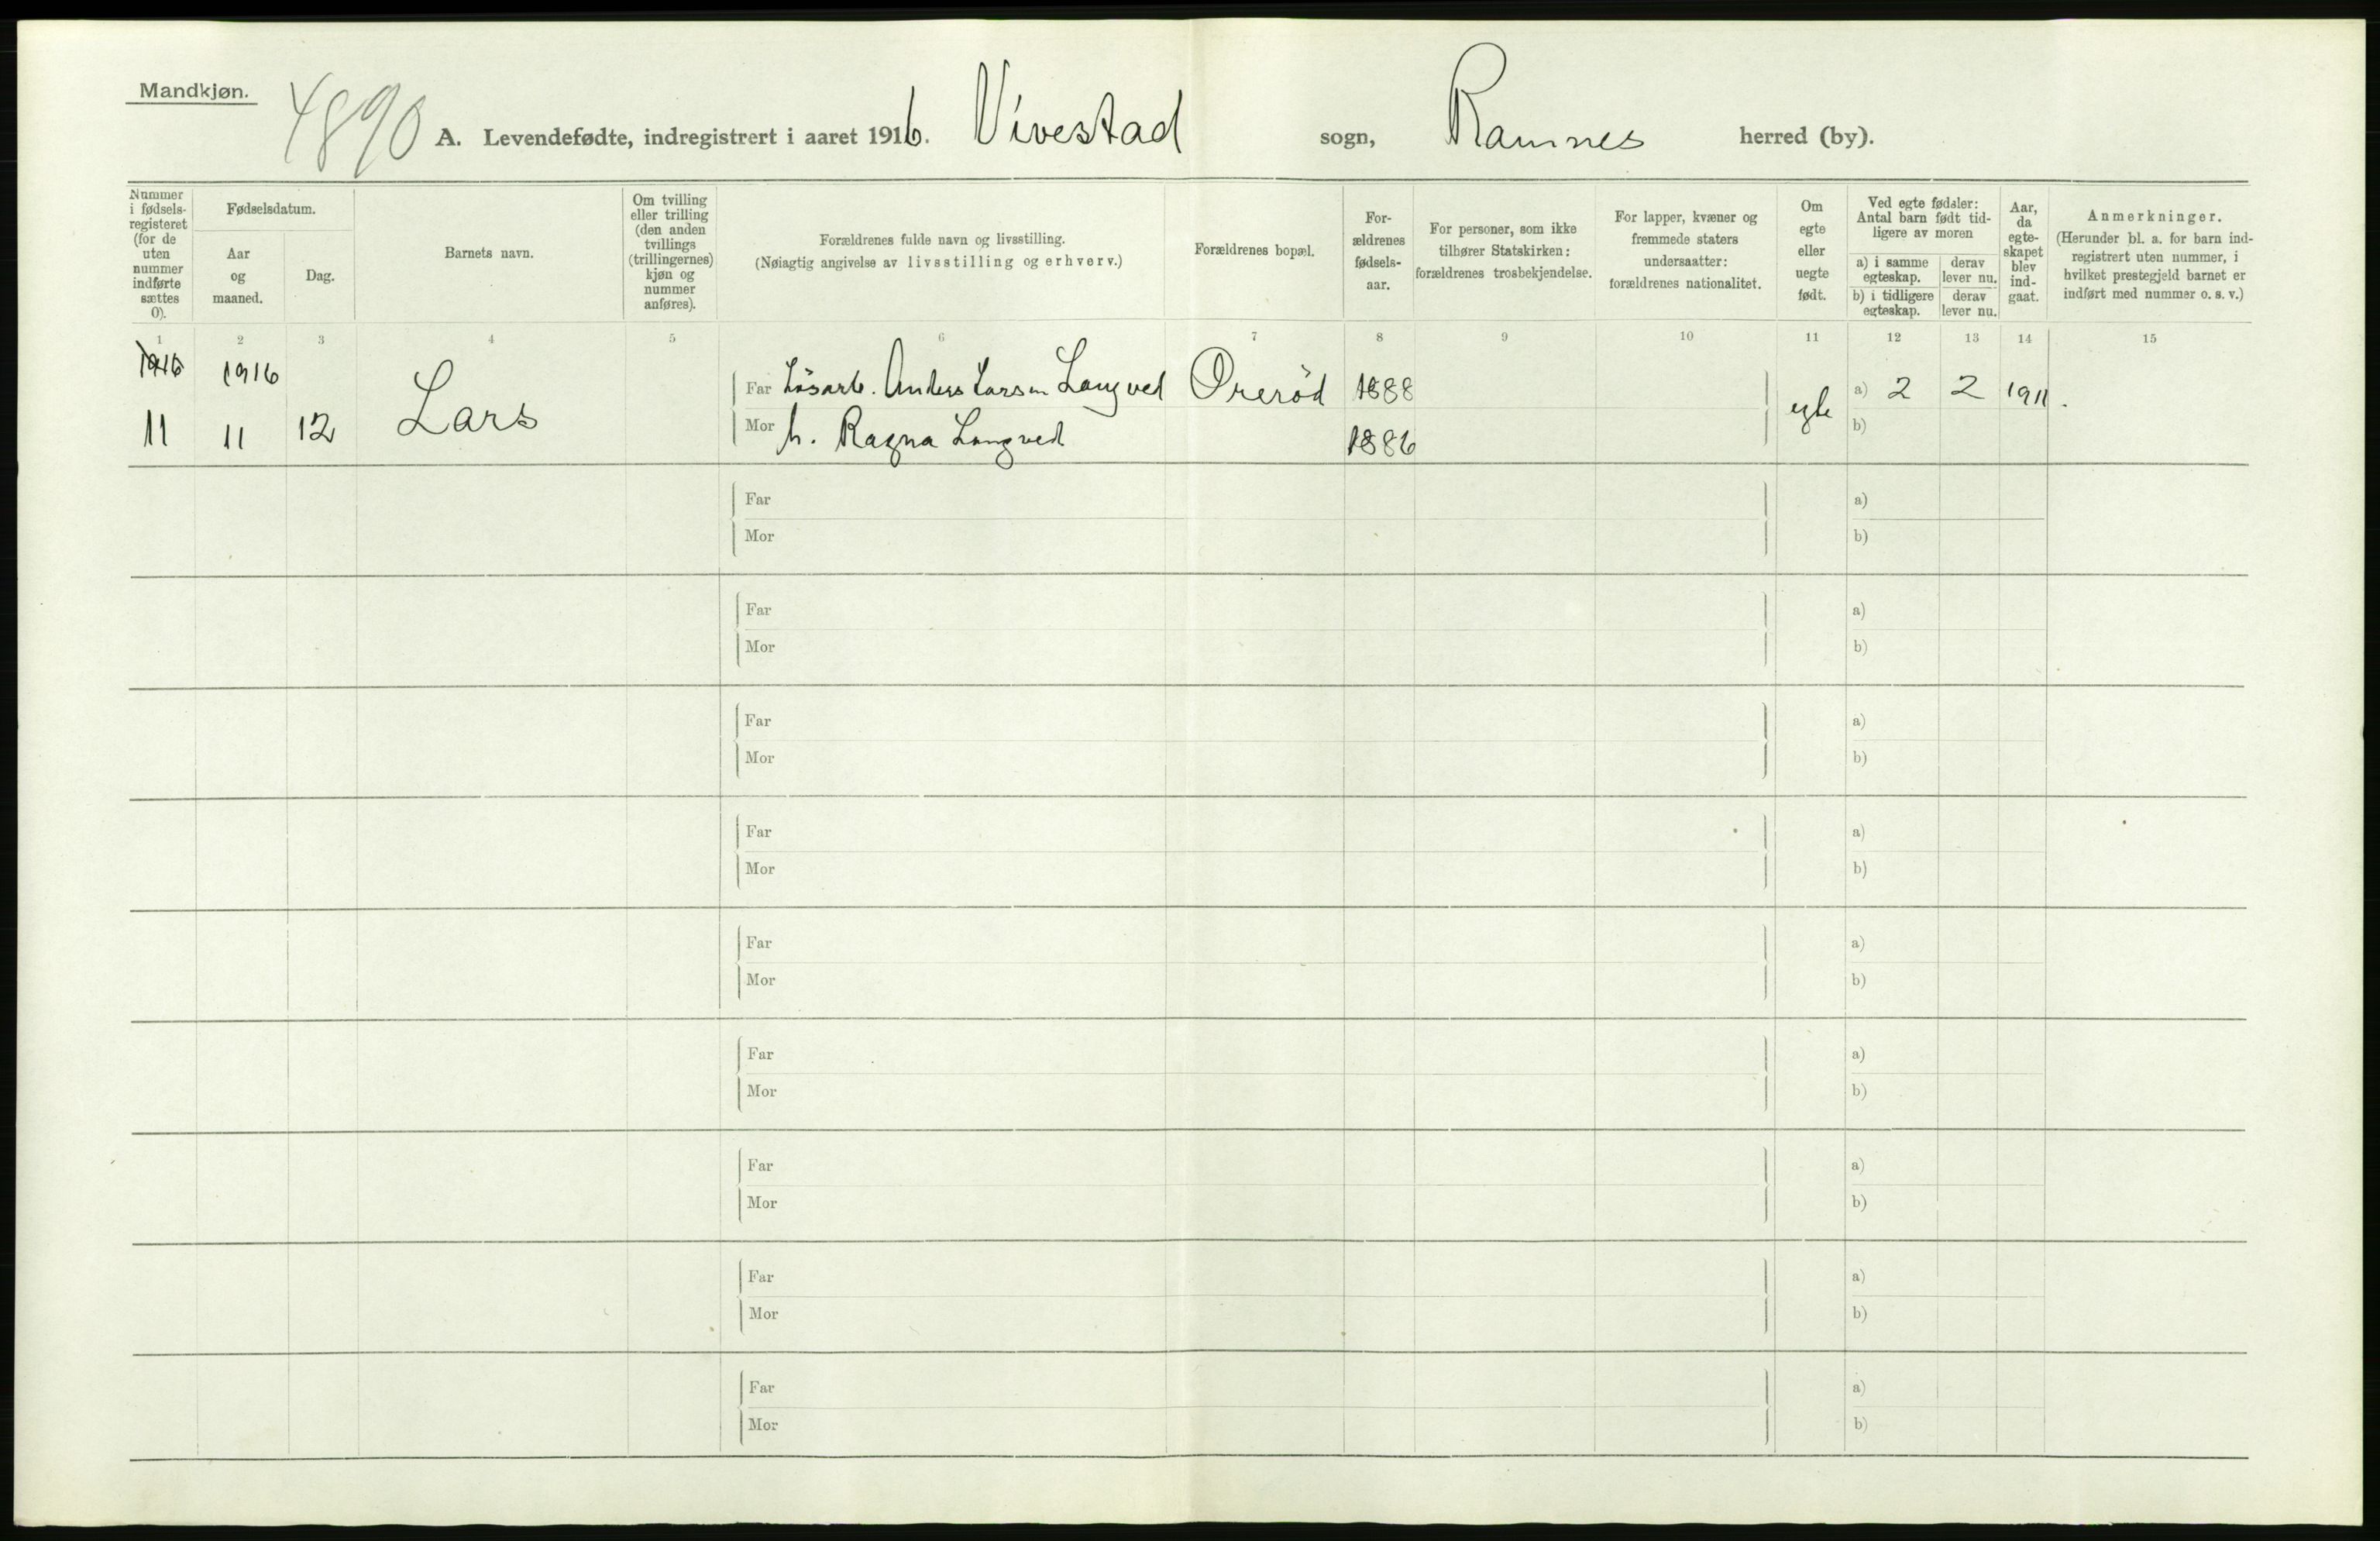 Mandkjøn.
4890
A. Levendefødte, indregistrert i aaret 1916. Vivestad sogn, Ramnes herred (by).
Nummer i fødsels-registeret (for de uten nummer indførte sættes 0).
Fødselsdatum.
Aar og maaned.
Dag.
Barnets navn.
Om tvilling eller trilling (den anden tvillings (trillingernes) kjøn og nummer anføres).
Forældrenes fulde navn og livsstilling.
(Nøiagtig angivelse av livsstilling og erhverv.)
Forældrenes bopæl.
For-ældrenes fødsels-aar.
For personer, som ikke tilhører Statskirken: forældrenes trosbekjendelse.
For lapper, kvæner og fremmede staters undersaatter: forældrenes nationalitet.
Om egte eller uegte født.
Ved egte fødsler: Antal barn født tid-ligere av moren
a) i samme egteskap.
derav lever nu.
b) i tidligere egteskap.
derav lever nu.
Aar, da egte-skapet blev ind-gaat.
Anmerkninger.
(Herunder bl. a. for barn ind-registrert uten nummer, i hvilket prestegjeld barnet er indført med nummer o. s. v.)
1 2 3 4 5 6 7 8 9 10 11 12 13 14 15
1916 1916
Far Løsarb. Anders Larsen Langved Orerød 1888 a) 2 2 1911.
11 11 12 Lars egte
Mor h. Ragna Langved 1886 b)
Far a)
Mor b)
Far a)
Mor b)
Far a)
Mor b)
Far a)
Mor b)
Far a)
Mor b)
Far a)
Mor b)
Far a)
Mor b)
Far a)
Mor b)
Far a)
Mor b)